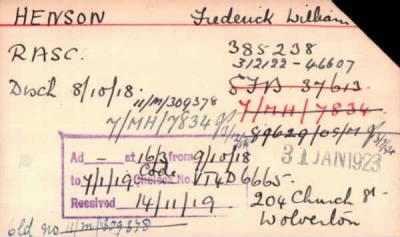 HENSON Frederick William
RASC. 385238
312122-46607
Disch 8/10/18. STB 37613
11/m/309378 7/MH/7834
7/MH/7834
89629/05/M
31 JAN 1923
Ad — at 16/3 from 9/10/18
Code
to 7/1/19 Chelsea No. VT4D6665.
Received 14/11/19 204 Church St.
Wolverton
old no 11/m/309378